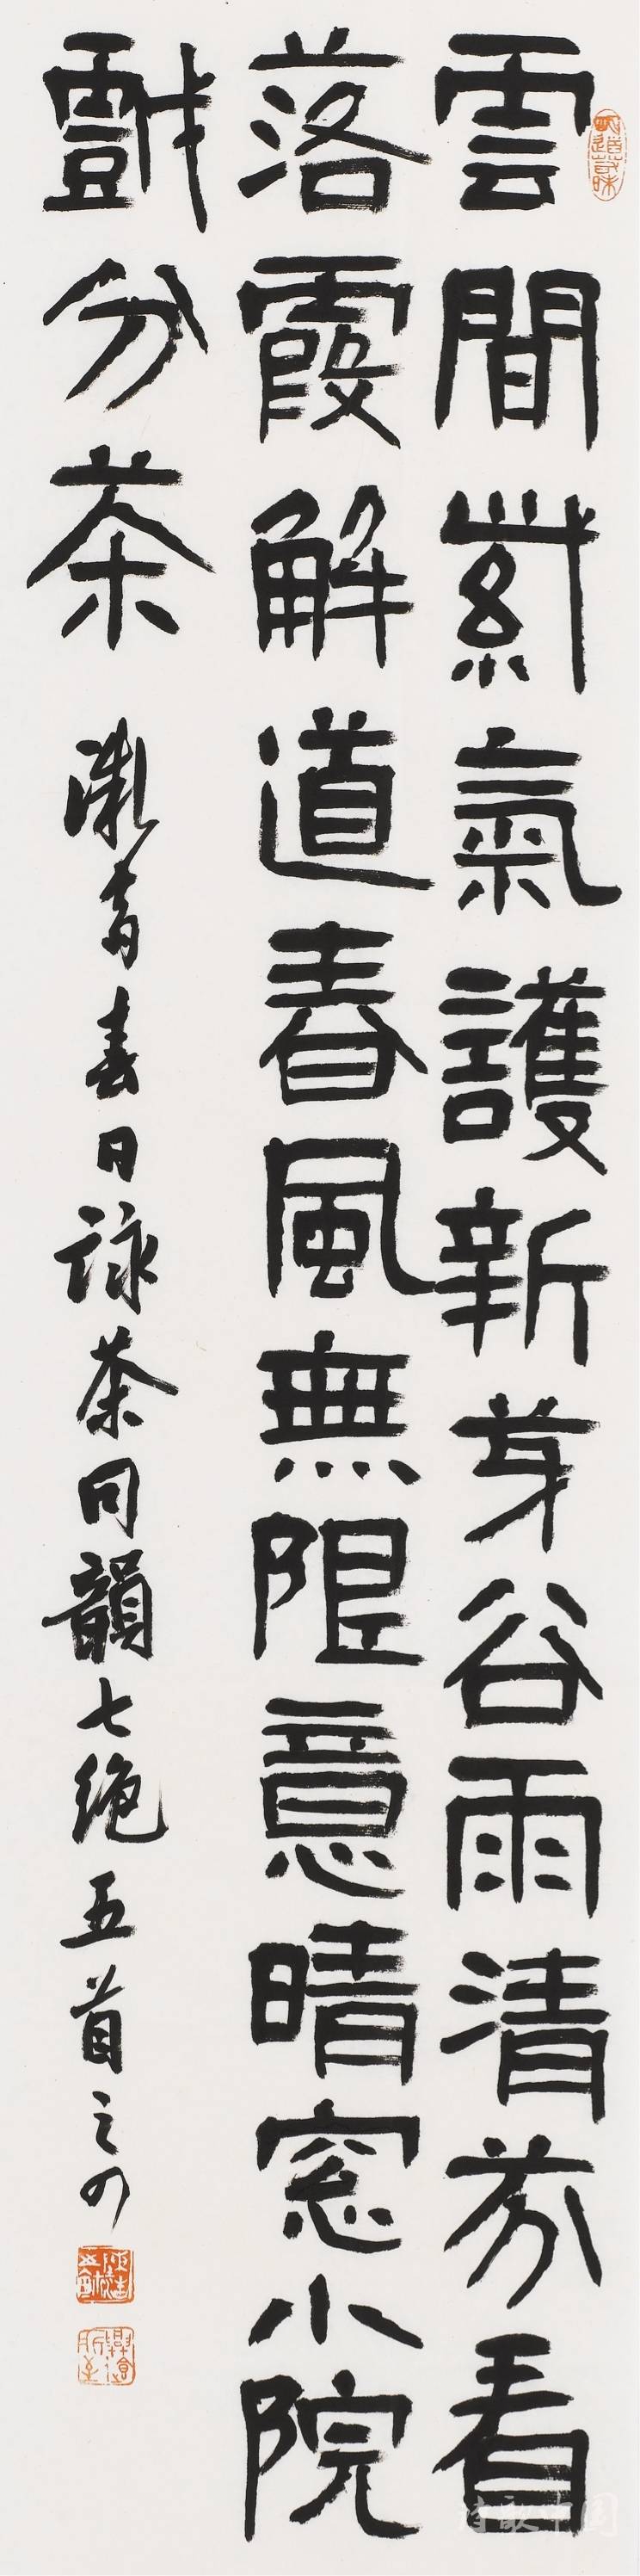 雲間紫氣護新芽谷雨清芬看
落霞解道春風無限意晴窓小院
戲分茶
漱齋春日詠茶同韻七绝五首之四
诗歌中国